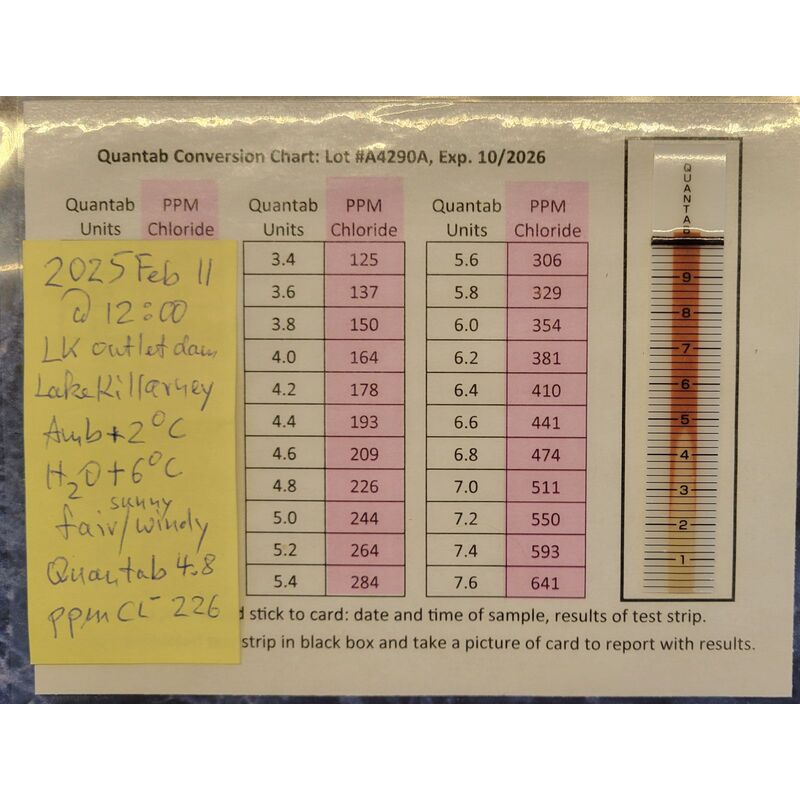 Quantab Conversion Chart: Lot #A4290A, Exp. 10/2026
Quantab Units PPM Chloride Quantab Units PPM Chloride Quantab Units PPM Chloride
3.4 125 5.6 306
3.6 137 5.8 329
3.8 150 6.0 354
4.0 164 6.2 381
4.2 178 6.4 410
4.4 193 6.6 441
4.6 209 6.8 474
4.8 226 7.0 511
5.0 244 7.2 550
5.2 264 7.4 593
5.4 284 7.6 641
2025 Feb 11
@ 12:00
LK outlet dam
Lake Killarney
Amb +2°C
H2O +6°C
sunny
fair/windy
Quantab 4.8
ppm CL⁻ 226
stick to card: date and time of sample, results of test strip.
strip in black box and take a picture of card to report with results.
QUANTAB
9
8
7
6
5
4
3
2
1